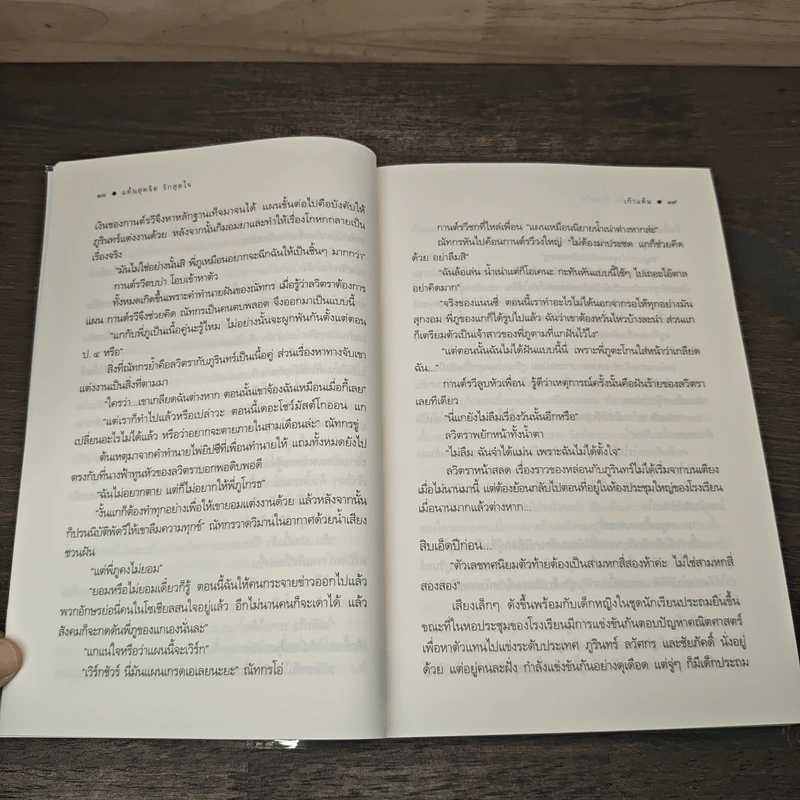 ๒๘ ● แค้นสุดจิต รักสุดใจ
เงินของกานต์รวีจึงหาหลักฐานเท็จมาจนได้ แผนขั้นต่อไปคือบังคับให้
ภูรินทร์แต่งงานด้วย หลังจากนั้นก็มอมยาและทำให้เรื่องโกหกกลายเป็น
เรื่องจริง
“มันไม่ใช่อย่างนั้นสิ พี่ภูเหมือนอยากจะฉีกฉันให้เป็นชิ้นๆ มากกว่า”
กานต์รวีตบบ่า โอบเข้าหาตัว
ทั้งหมดเกิดขึ้นเพราะคำทำนายฝันของณัทกร เมื่อรู้ว่าลวิตราต้องการ
แผน กานต์รวีจึงช่วยคิด ณัทกรเป็นคนตบพลอต จึงออกมาเป็นแบบนี้
“แกกับพี่ภูเป็นเนื้อคู่นะรู้ไหม ไม่อย่างนั้นจะผูกพันกันตั้งแต่ตอน
ป. ๔ หรือ”
สิ่งที่ณัทกรย้ำคือลวิตรากับภูรินทร์เป็นเนื้อคู่ ส่วนเรื่องหาทางจับเขา
แต่งงานเป็นสิ่งที่ตามมา
“ใครว่า...เขาเกลียดฉันต่างหาก ตอนนั้นเขาจ้องฉันเหมือนเมื่อกี้เลย”
“แต่เราก็ทำไปแล้วหรือเปล่าวะ ตอนนี้เดอะโชว์มัสต์โกออน แก
เปลี่ยนอะไรไม่ได้แล้ว หรือว่าอยากจะตายภายในสามเดือนล่ะ” ณัทกรขู่
ต้นเหตุมาจากคำทำนายไพ่ยิปซีที่เพื่อนทำนายให้ แถมทั้งหมดยังไป
ตรงกับที่นางฟ้าทูนหัวของลวิตราบอกพอดิบพอดี
“ฉันไม่อยากตาย แต่ก็ไม่อยากให้พี่ภูโกรธ”
“งั้นแกก็ต้องทำทุกอย่างเพื่อให้เขายอมแต่งงานด้วย แล้วหลังจากนั้น
ก็ปรนนิบัติพัดวีให้เขาลืมความทุกข์” ณัทกรวาดวิมานในอากาศด้วยน้ำเสียง
ชวนฝัน
“แต่พี่ภูคงไม่ยอม”
“ยอมหรือไม่ยอมเดี๋ยวก็รู้ ตอนนี้ฉันให้คนกระจายข่าวออกไปแล้ว
พวกอักษรย่อนี่คนในโซเชียลสนใจอยู่แล้ว อีกไม่นานคนก็จะเดาได้ แล้ว
สังคมก็จะกดดันพี่ภูของแกเองนั่นละ”
“แกแน่ใจหรือว่าแผนนี้จะเวิร์ก”
“เวิร์กชัวร์ นี่มันแผนเกรดเอเลยนะยะ” ณัทกรโอ่
เก้าแต้ม ● ๒๙
กานต์รวีซกที่ไหล่เพื่อน “แผนเหมือนนิยายน้ำเน่าต่างหากล่ะ”
ณัทกรหันไปค้อนกานต์รวีวงใหญ่ “ไม่ต้องมาประชด แกก็ช่วยคิด
ด้วย อย่าลืมสิ”
“ฉันล้อเล่น น้ำเน่าแต่ก็โอเคนะ กะทันหันแบบนี้ใช้ๆ ไปเถอะไอ้ตาล
อย่าคิดมาก”
“จริงของแนนซี่ ตอนนี้เราทำอะไรไม่ได้นอกจากรอให้ทุกอย่างมัน
สุกงอม พี่ภูของแกก็ได้รูปไปแล้ว ฉันว่าเขาต้องหวั่นไหวบ้างละน่า ส่วนแก
ก็เตรียมตัวเป็นเจ้าสาวของพี่ภูตามที่แกฝันไว้ไง”
“แต่ตอนนั้นฉันไม่ได้ฝันแบบนี้นี่ เพราะพี่ภูตะโกนใส่หน้าว่าเกลียด
ฉัน...”
กานต์รวีลูบหัวเพื่อน รู้ดีว่าเหตุการณ์ครั้งนั้นคือฝันร้ายของลวิตรา
เลยทีเดียว
“นี่แกยังไม่ลืมเรื่องวันนั้นอีกหรือ”
ลวิตราพยักหน้าทั้งน้ำตา
“ไม่ลืม ฉันจำได้แม่น เพราะฉันไม่ได้ตั้งใจ”
ลวิตราหน้าสลด เรื่องราวของหล่อนกับภูรินทร์ไม่ได้เริ่มจากบนเตียง
เมื่อไม่นานมานี้ แต่ต้องย้อนกลับไปตอนที่อยู่ในห้องประชุมใหญ่ของโรงเรียน
เมื่อนานมากแล้วต่างหาก...
สิบเอ็ดปีก่อน...
“ตัวเลขทศนิยมตัวท้ายต้องเป็นสามหกสี่สองห้าค่ะ ไม่ใช่สามหกสี่
สองสอง”
เสียงเล็กๆ ดังขึ้นพร้อมกับเด็กหญิงในชุดนักเรียนประถมยืนขึ้น
ขณะที่ในหอประชุมของโรงเรียนมีการแข่งขันกันตอบปัญหาคณิตศาสตร์
เพื่อหาตัวแทนไปแข่งระดับประเทศ ภูรินทร์ ลวัศกร และชัยภัคดิ์ นั่งอยู่
ด้วย แต่อยู่คนละฝั่ง กำลังแข่งขันกันอย่างดุเดือด แต่จู่ๆ ก็มีเด็กประถม